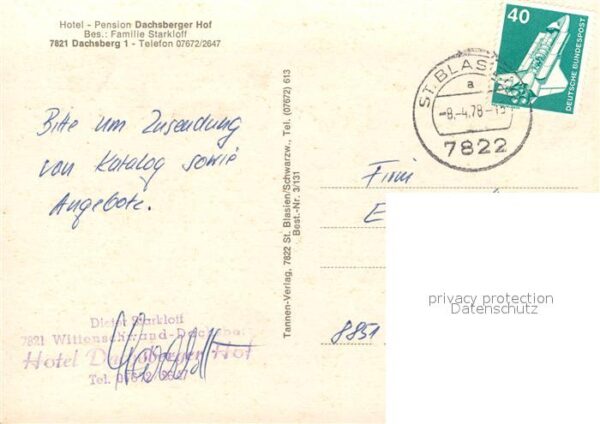 Hotel - Pension Dachsberger Hof
Bes.: Familie Starkloff
7821 Dachsberg 1 - Telefon 07672/2647
40
DEUTSCHE BUNDESPOST
ST. BLASIEN
a
-8.-4.78-15
7822
Bitte um Zusendung
von Katalog sowie
Angebote.
Tannen-Verlag, 7822 St. Blasien/Schwarzw., Tel. (07672) 613
Best.-Nr. 3/131
Firm
E
8851
privacy protection
Datenschutz
Dieter Starkloff
7821 Wittenschwand-Dachsbg.
Hotel Dachsberger Hof
Tel. 07672/2647